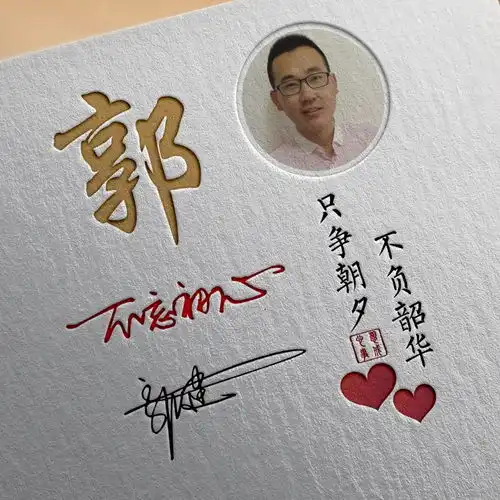 郭
不忘初心
只争朝夕
不负韶华
郭建